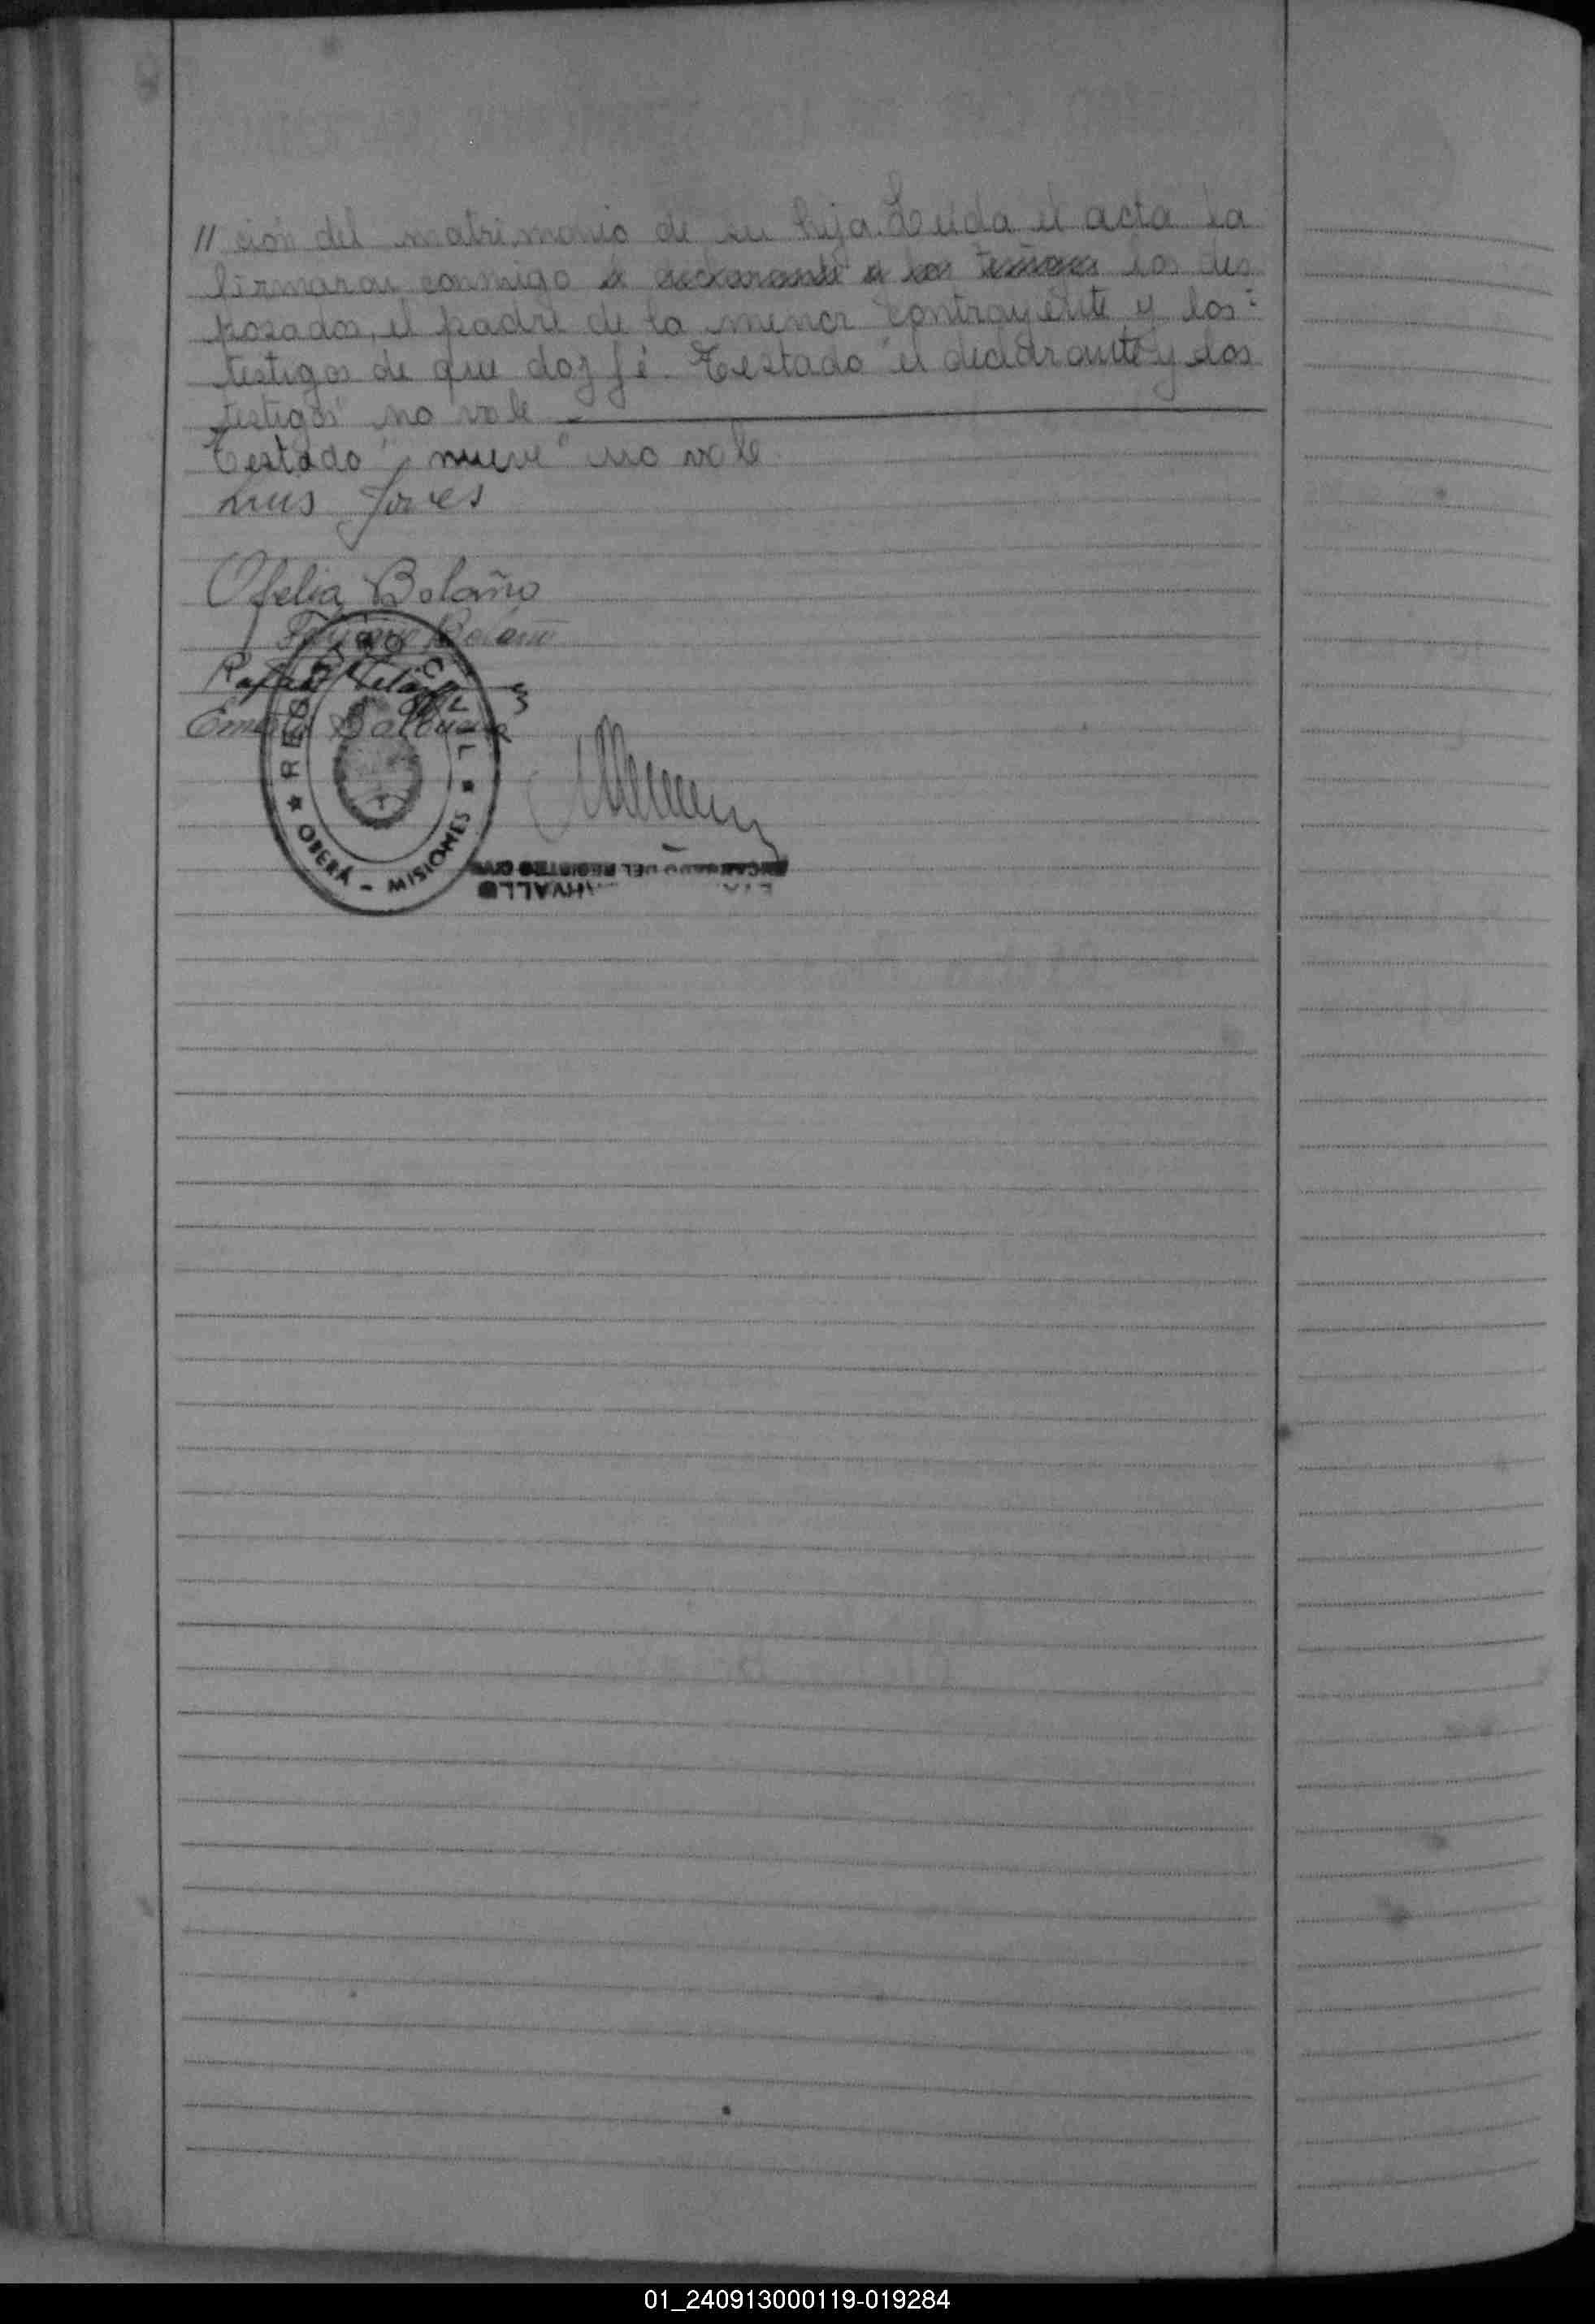 // ción del matrimonio de su hija. Leida el acta la
firmaron conmigo el declarante y los testigos los des
posados, el padre de la menor contrayente y los
testigos de que doy fé. Testado "el declarante y los
testigos" no vale
Testado "nueve" no vale
Luis
Ofelia Bolaño
Bolaño
Rafael
REGISTRO CIVIL
OBERÁ - MISIONES
ENCARGADO DEL REGISTRO CIVIL
01_240913000119-019284